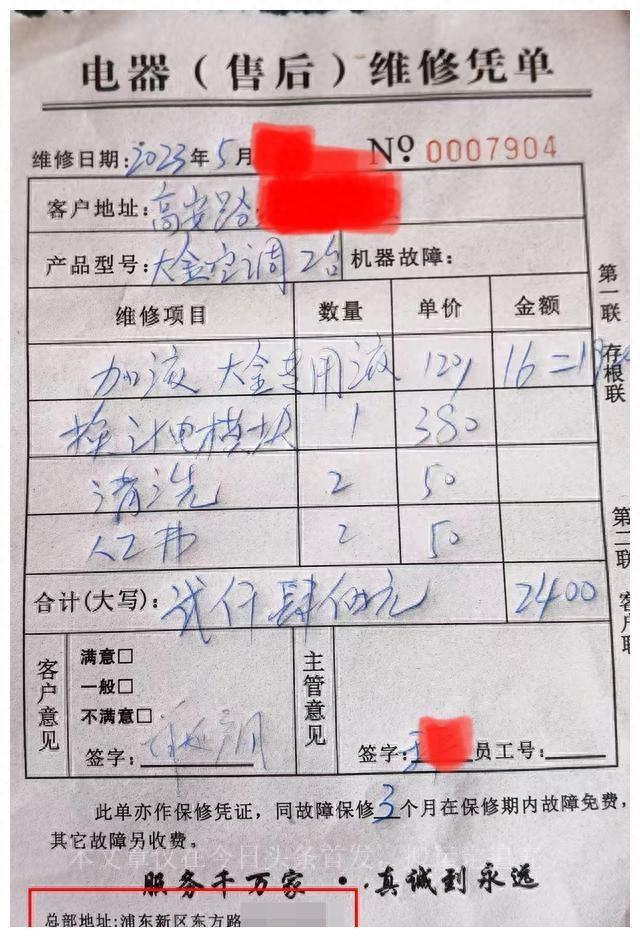 电器（售后）维修凭单
维修日期:2023年5月 № 0007904
客户地址:高安路
产品型号:大金空调2台 机器故障:
维修项目 数量 单价 金额
加液 大金专用液 120 16=19
换计电模块 1 380
清洗 2 50
人工费 2 50
合计(大写):贰仟肆佰元 2400
客户意见
满意□
一般□
不满意□
签字:
主管意见
签字: 员工号:
第一联 存根联
第二联 客户联
此单亦作保修凭证，同故障保修3个月在保修期内故障免费，
其它故障另收费。
本文章仅在今日头条首发，
服务千万家·真诚到永远
总部地址:浦东新区东方路